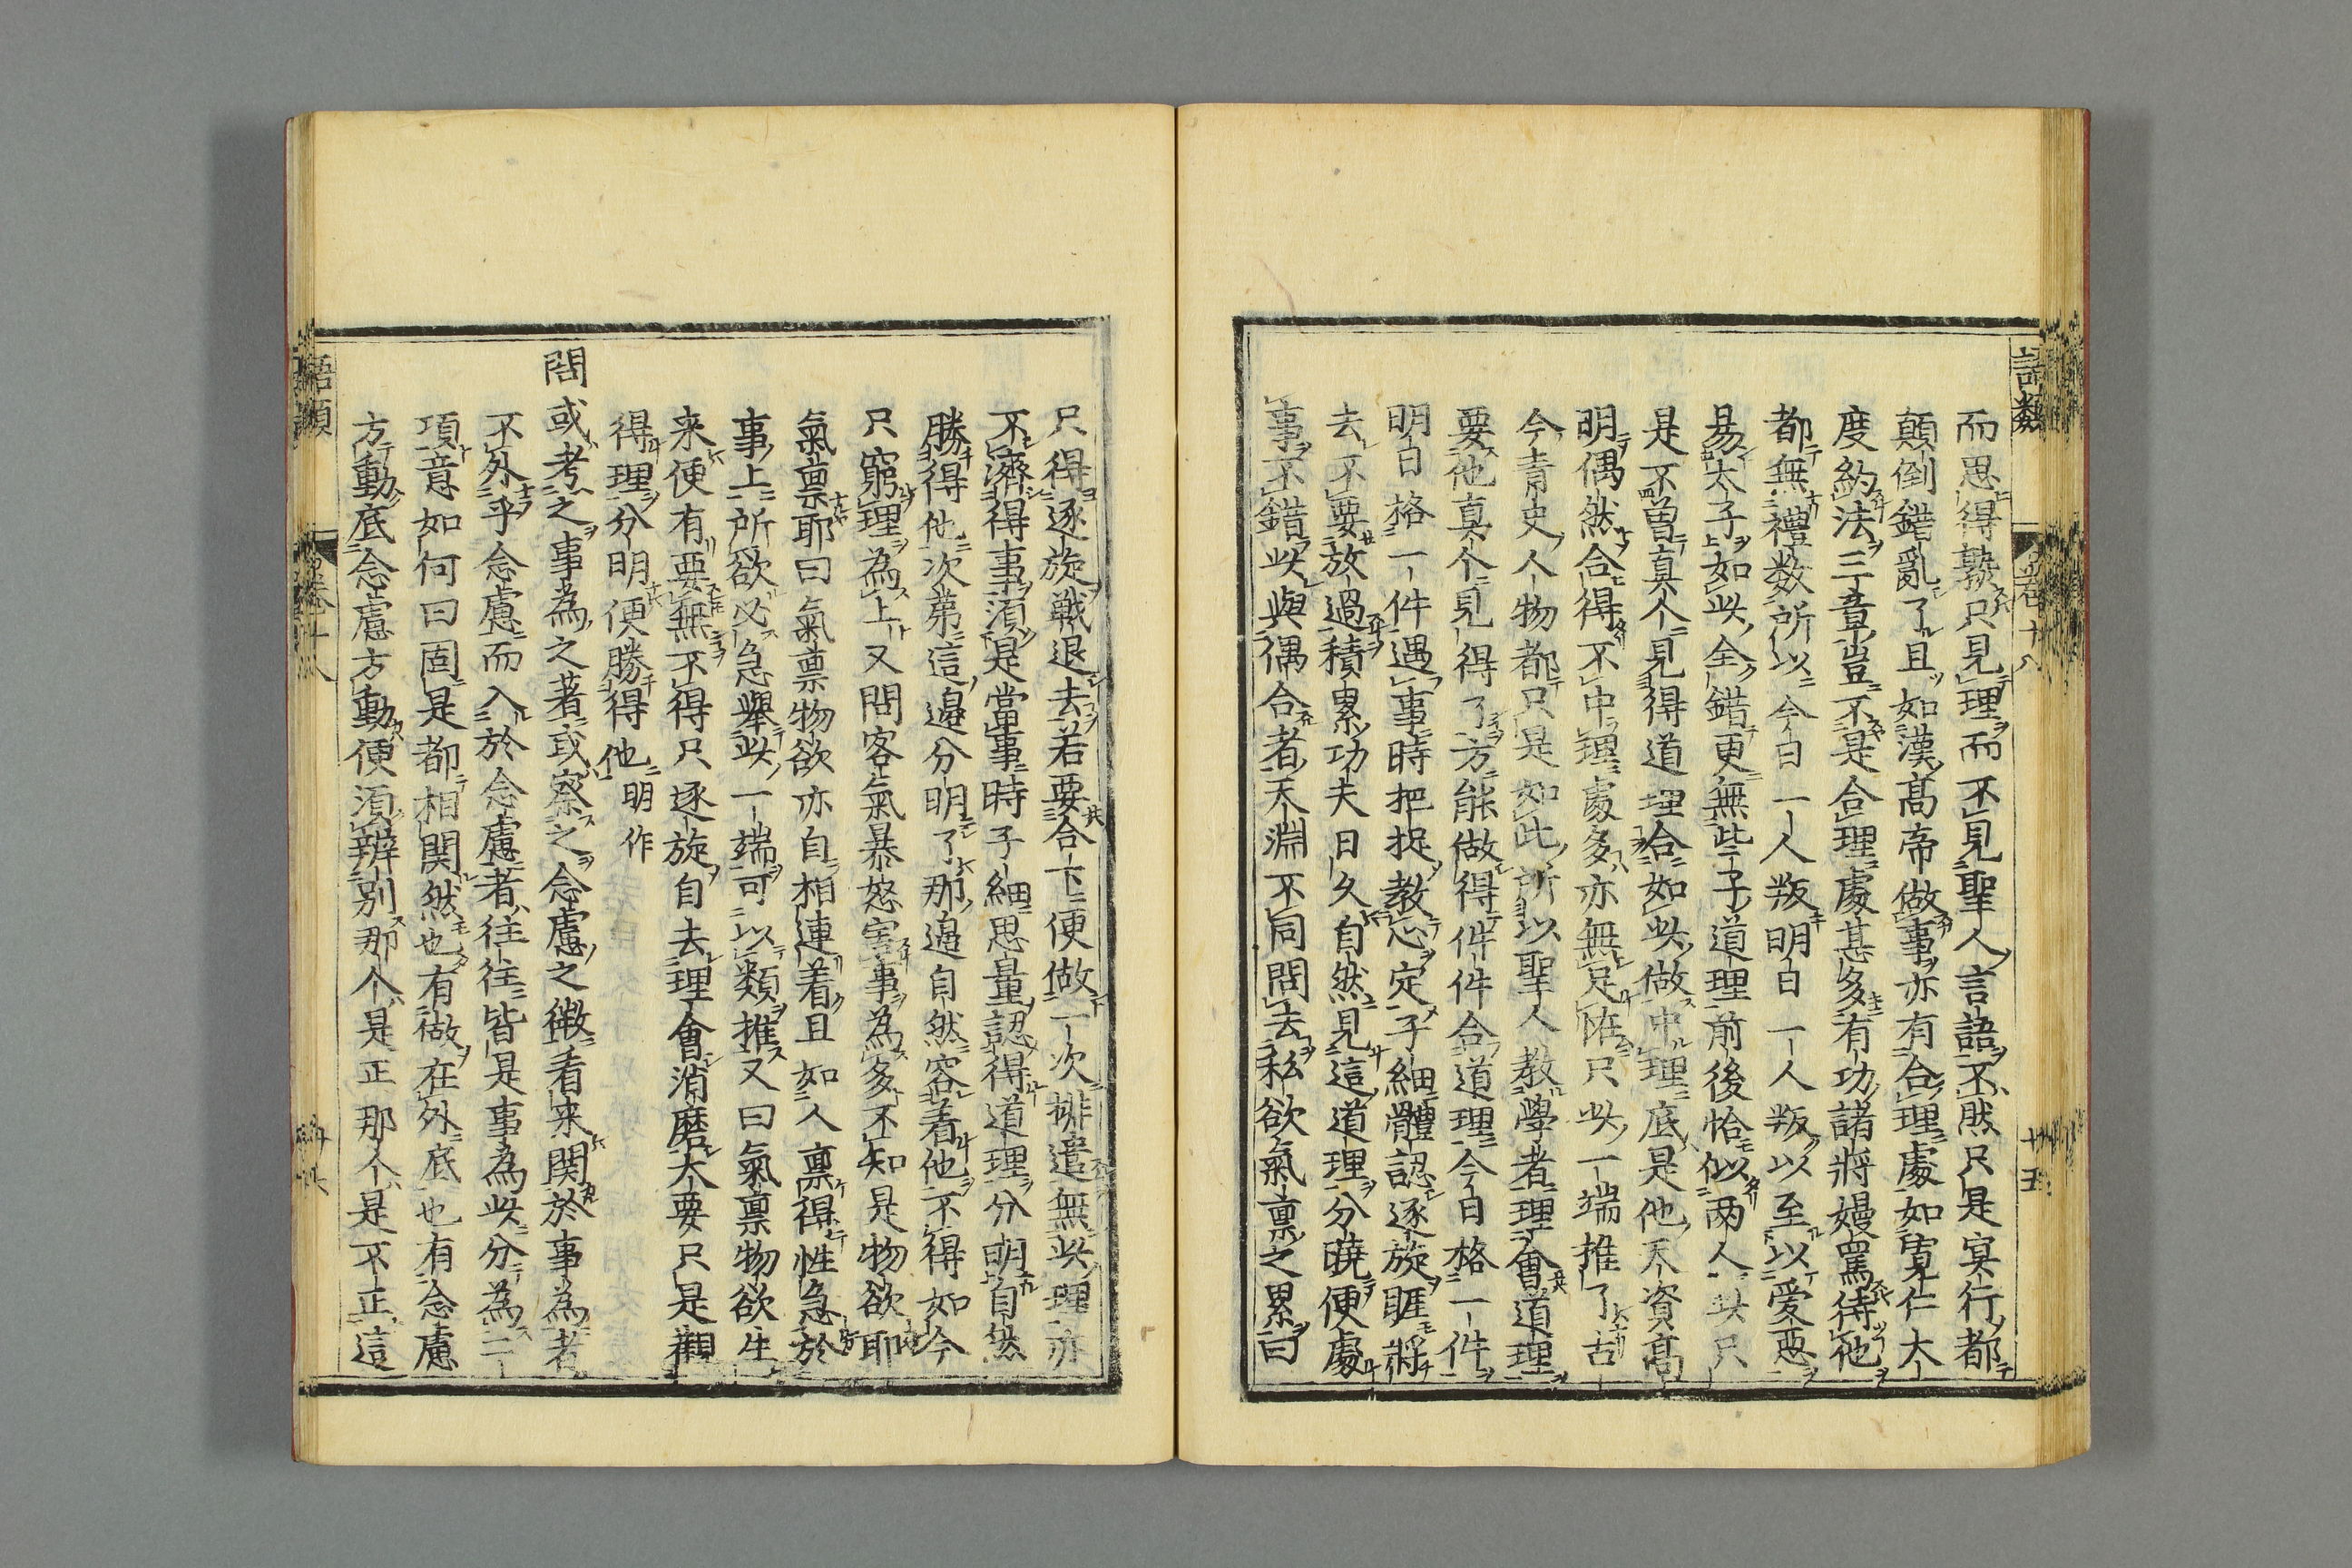 語類
卷十八
十五
而思得熟只見理而不見聖人言語不然只是冥行都
顛倒錯亂了且如漢高帝做事亦有合理處如寛仁大
度約法三章豈不是合理處甚多有功諸將嫚罵待他
都無禮数所以今日一人叛明日一人叛以至以愛惡
易太子如此全錯更無些子道理前後恰似两人此只
是不曽真个見得道理合如此做中理底是他天資高
明偶然合得不中理處多亦無足怪只此一端推了古
今青史人物都只是如此所以聖人教學者理會道理
要他真个見得了方能做得件件合道理今日格一件
明日格一件遇事時把捉教心定子細體認逐旋睚將
去不要放過積累功夫日久自然見這道理分曉便處
事不錯此與偶合者天淵不同問去私欲氣稟之累曰
只得逐旋戰退去若要合下便做一次排遣無此理亦
不濟得事須是當事時子細思量認得道理分明自然
勝得他次第這邉分明了那邉自然容着他不得如今
只窮理為上又問客氣暴怒害事為多不知是物欲耶
氣稟耶曰氣稟物欲亦自相連着且如人稟得性急於
事上所欲必急舉此一端可以類推又曰氣稟物欲生
来便有要無不得只逐旋自去理會消磨大要只是觀
得理分明便勝得他 明作
問或考之事為之著或察之念慮之微看来関於事為者
不外乎念慮而入於念慮者往往皆是事為此分為二
項意如何曰固是都相関然也有做在外底也有念慮
方動底念慮方動便須辨别那个是正那个是不正這
語類
卷十八